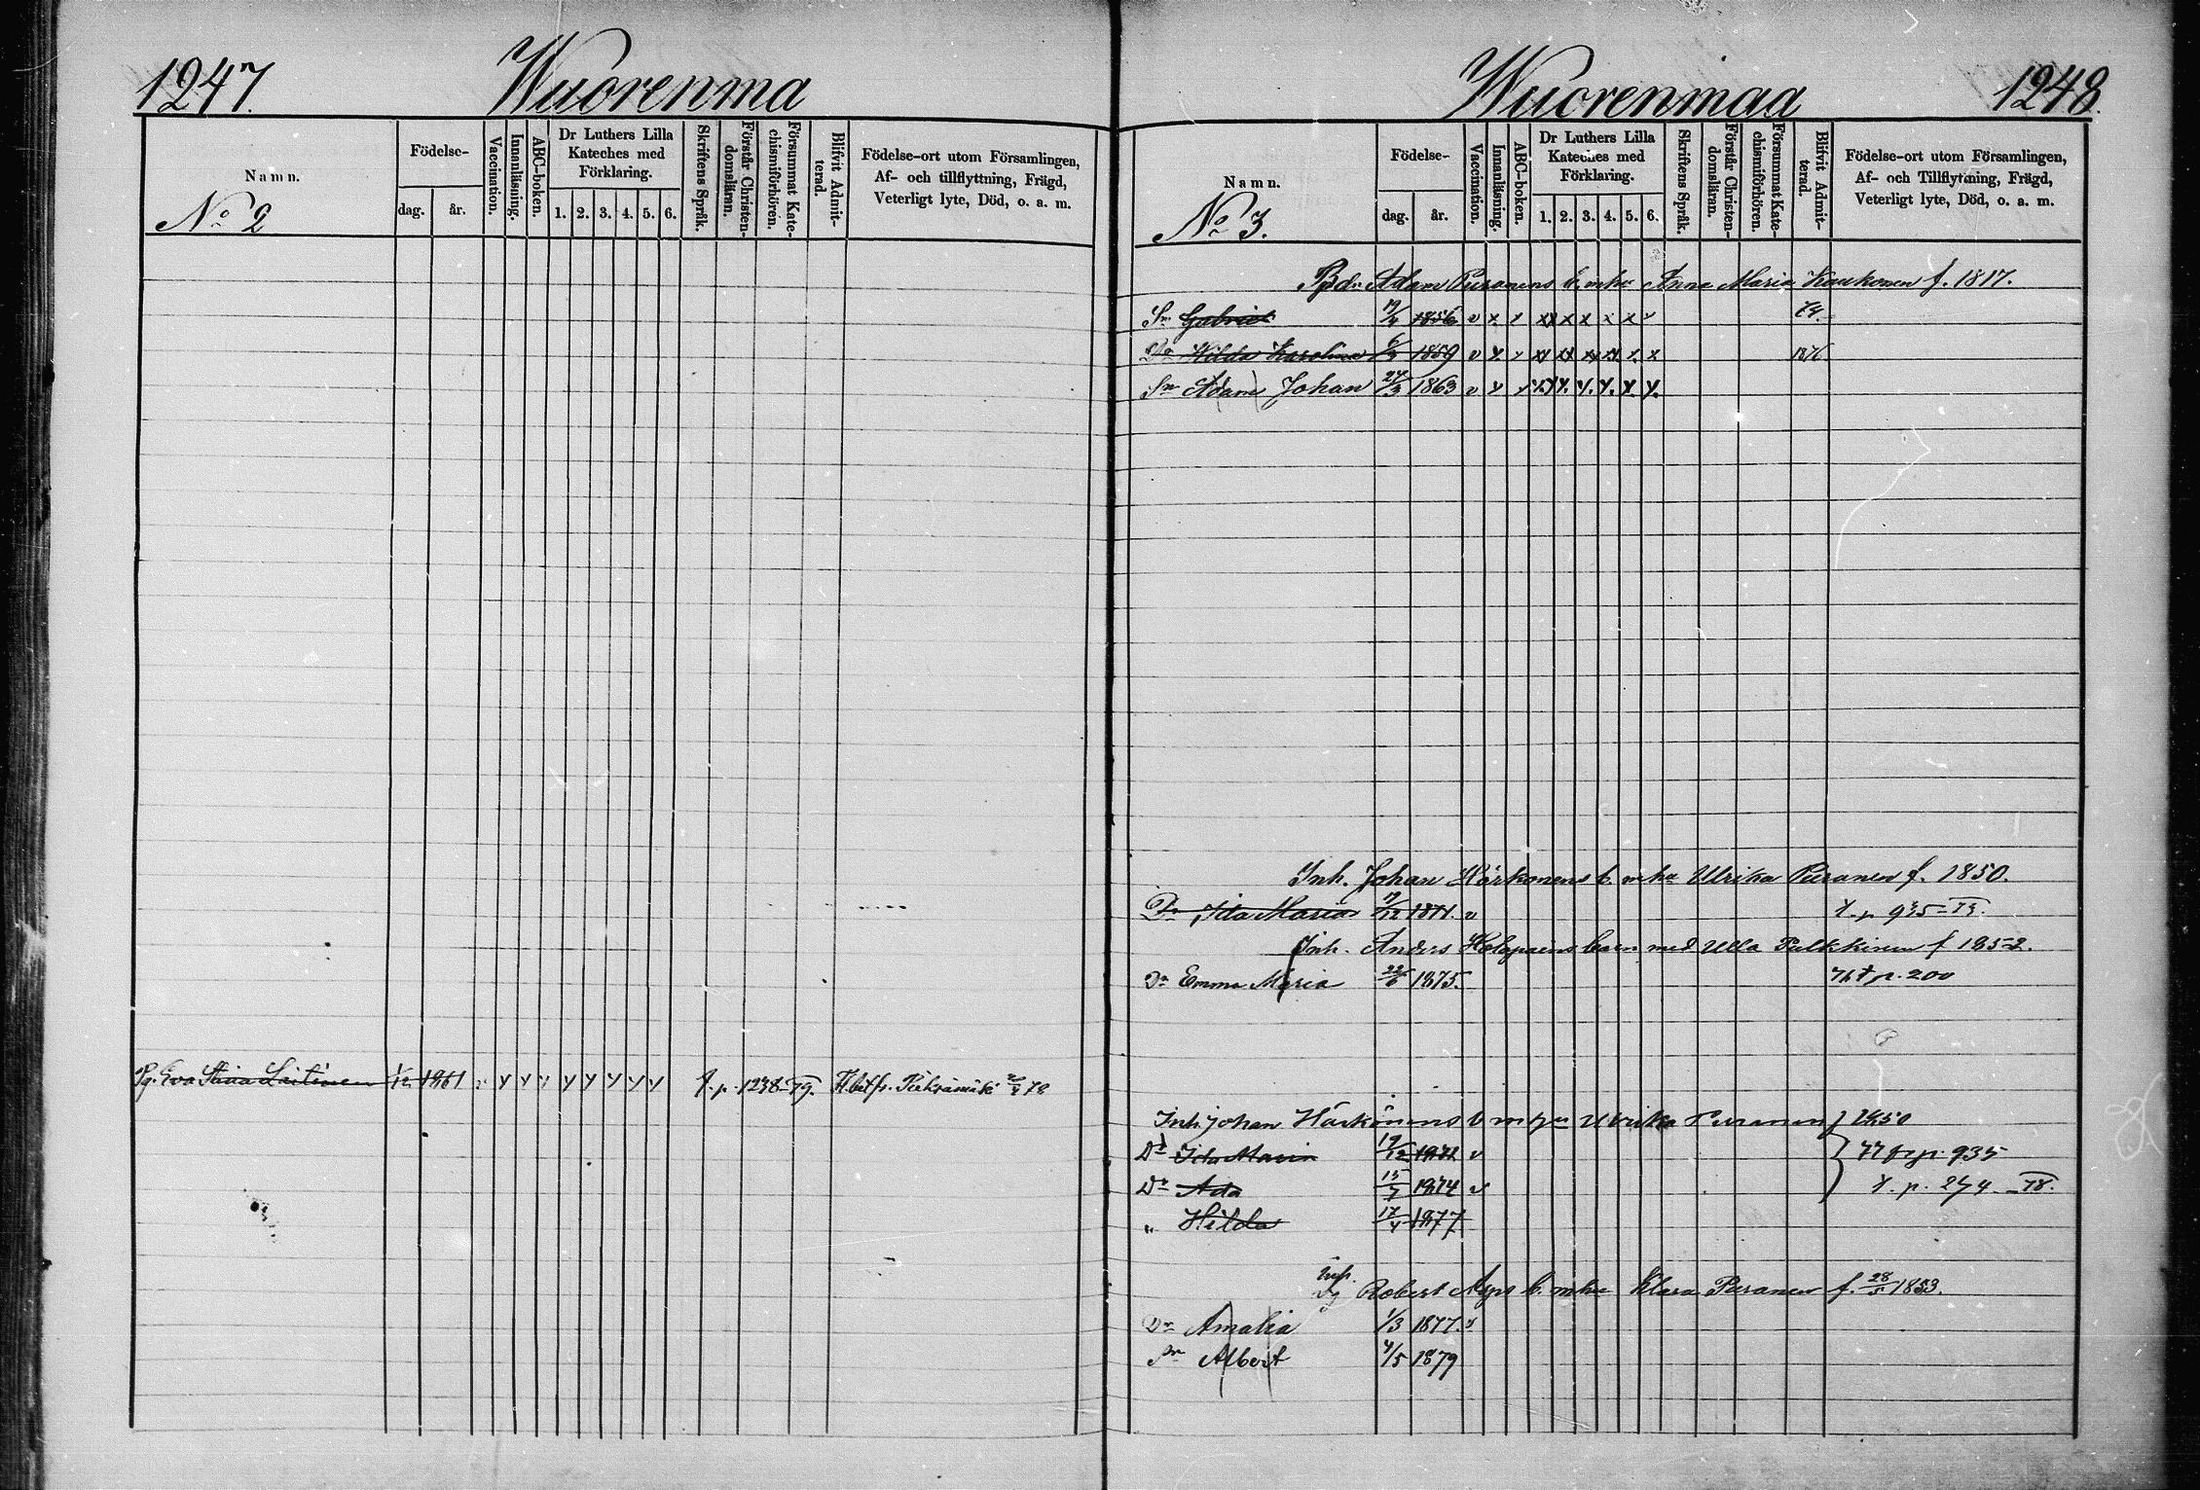 1247.
Wuorenma
Namn.
No 2
Födelse-
dag.
år.
Vaccination.
Innanläsning.
ABC-boken.
Dr Luthers Lilla
Kateches med
Förklaring.
1. 2. 3. 4. 5. 6.
Skriftens Språk.
Förstår Christen-
domsläran.
Försummat Kate-
chismiförhören.
Blifvit Admit-
terad.
Födelse-ort utom Församlingen,
Af- och tillflyttning, Frägd,
Veterligt lyte, Död, o. a. m.
Pg. Eva Stina Laitinen 1/12 1861 v y y y y y y y y f. p. 1238-79.
Wuorenmaa
1248.
Namn.
No 3.
Födelse-
dag.
år.
Vaccination.
Innanläsning.
ABC-boken.
Dr Luthers Lilla
Kateches med
Förklaring.
1. 2. 3. 4. 5. 6.
Skriftens Språk.
Förstår Christen-
domsläran.
Försummat Kate-
chismiförhören.
Blifvit Admit-
terad.
Födelse-ort utom Församlingen,
Af- och Tillflyttning, Frägd,
Veterligt lyte, Död, o. a. m.
Adam Puranens b. m hu Anna Maria Kaukonen f. 1817.
Sn Gabriel 1856 v x x xx x x x x v
Dr Hilda Karolina 1859 v x x xx xx xx xx x x 1876
Sn Adam Johan 24/3 1863 v x x
Inh. Johan Härkönens b. m hu Ulrika Puranen f. 1850.
Dr Ida Maria 19/12 1871. v f. p. 935-73.
Inh. Anders Holopaens barn med Ulla Pulkkinen f 1852.
Dr Emma Maria 1875. p. 200
Inh. Johan Härkönens b m hu Ulrika Puranen f 1850
Dr Ida Maria 19/12 1872 v 77 fr p. 935
Dr Ada 15/7 1874 v f. p. 274 -78.
" Hilda 17/4 1877
Inh. Robert Asps b. m hu Klara Puranen f. 28/5 1853.
Dr Amalia 1/3 1877. v
Sn Albert 4/5 1879